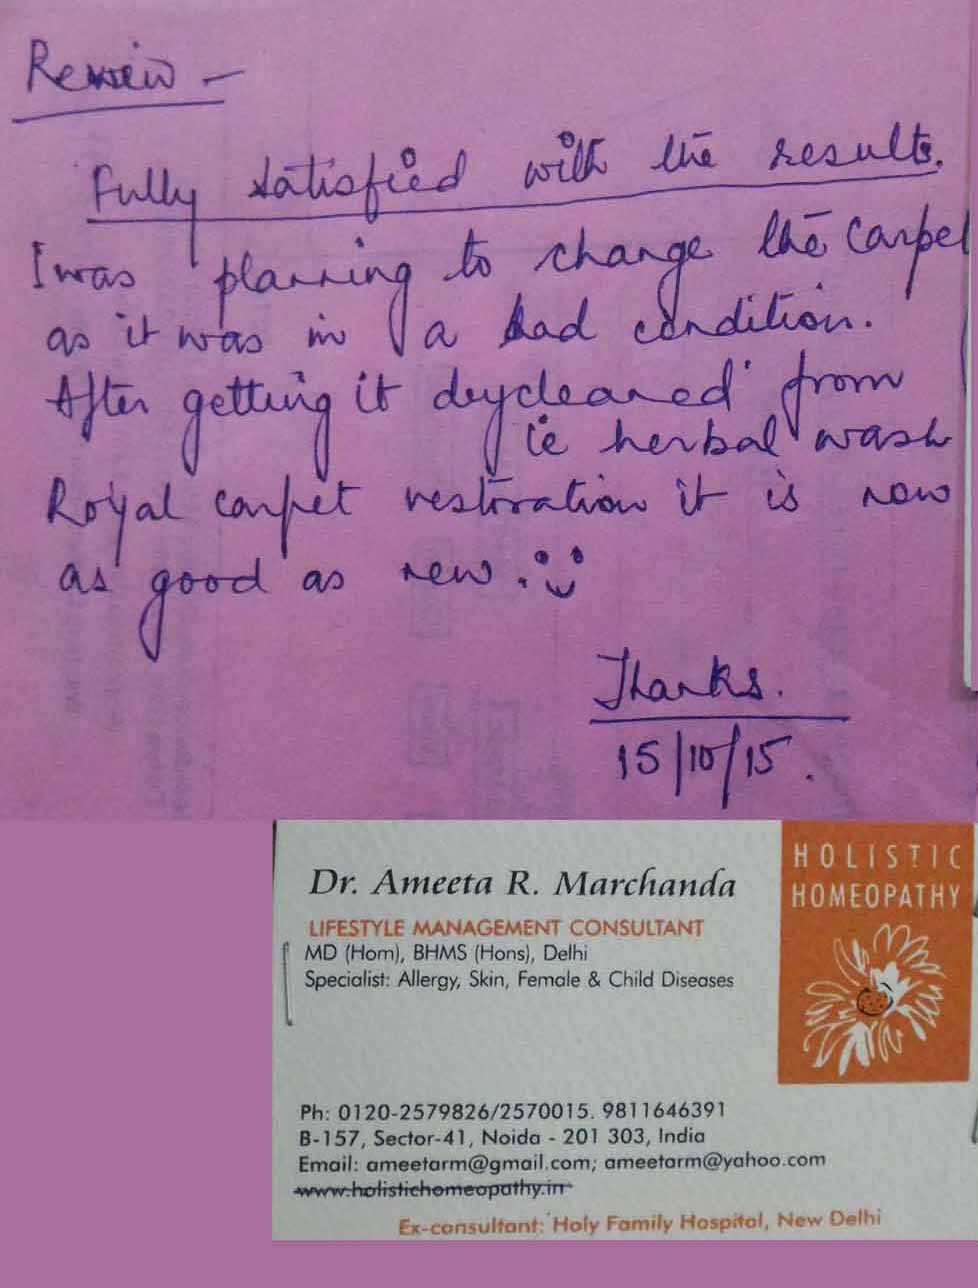 Review –
Fully satisfied with the results.
I was planning to change the carpet
as it was in a bad condition.
After getting it drycleaned from
ie herbal wash
Royal carpet restoration it is now
as good as new. :)
Thanks.
15/10/15.
HOLISTIC
HOMEOPATHY
Dr. Ameeta R. Marchanda
LIFESTYLE MANAGEMENT CONSULTANT
MD (Hom), BHMS (Hons), Delhi
Specialist: Allergy, Skin, Female & Child Diseases
Ph: 0120-2579826/2570015. 9811646391
B-157, Sector-41, Noida - 201 303, India
Email: ameetarm@gmail.com; ameetarm@yahoo.com
www.holistichomeopathy.in
Ex-consultant: Holy Family Hospital, New Delhi